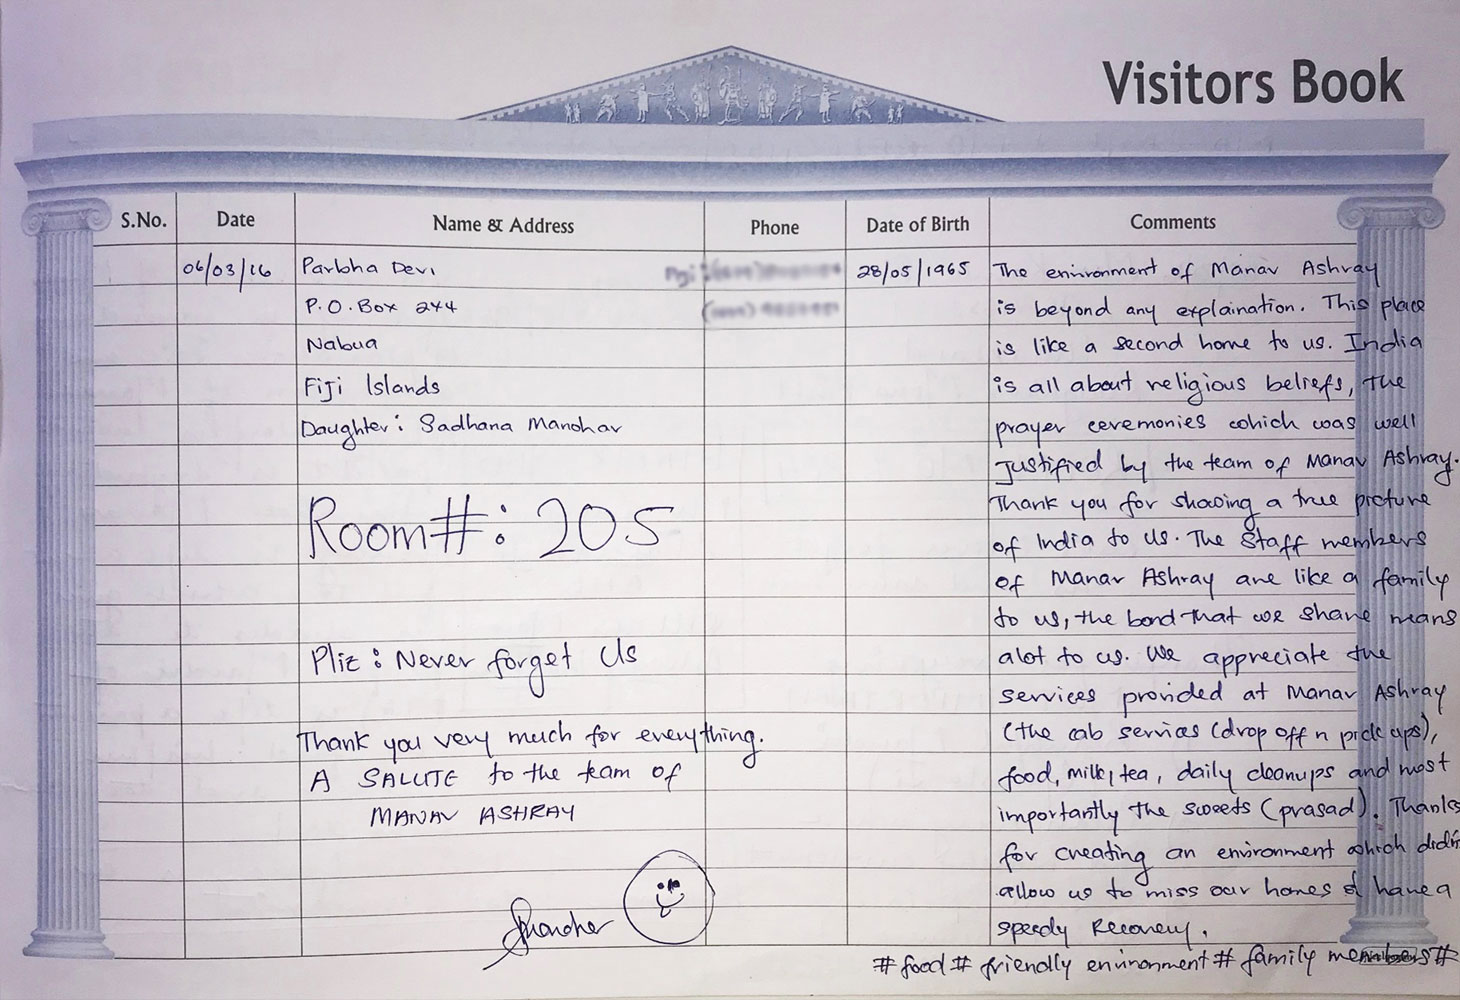 Visitors Book
S.No. Date Name & Address Phone Date of Birth Comments
06/03/16 Parbha Devi 28/05/1965
P.O.Box 244
Nabua
Fiji Islands
Daughter: Sadhana Manohar
Room#: 205
Pliz: Never forget Us
Thank you very much for everything.
A SALUTE to the team of
MANAV ASHRAY
The environment of Manav Ashray
is beyond any explaination. This place
is like a second home to us. India
is all about religious beliefs, the
prayer ceremonies which was well
justified by the team of Manav Ashray.
Thank you for showing a true picture
of India to us. The Staff members
of Manav Ashray are like a family
to us, the bond that we share means
alot to us. We appreciate the
services provided at Manav Ashray
(the cab services (drop off n pick ups),
food, milk, tea, daily cleanups and most
importantly the sweets (prasad). Thanks
for creating an environment which didn't
allow us to miss our homes & have a
speedy Recovery.
#food# friendly environment# family members#